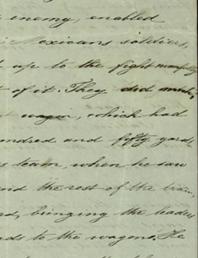 enemy, enabled
Mexicans soldiers,
up to the fight manfully
of it. They did
wagon, which had
hundred and fifty yards
team, when he saw
and the rest of the train,
bringing the leaders
to the wagons. He